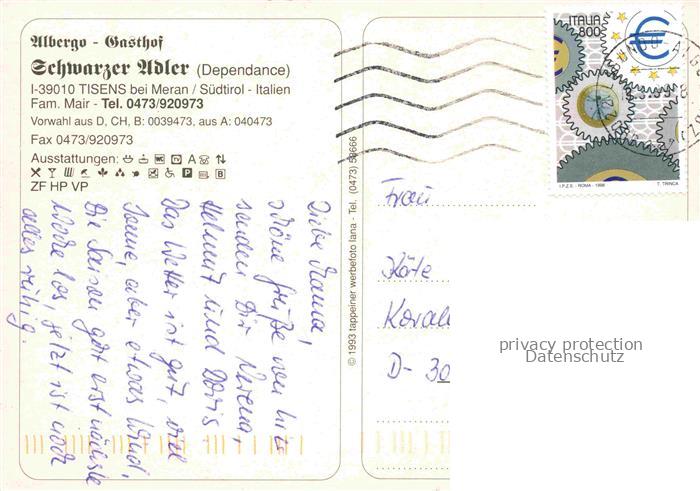 Albergo - Gasthof
Schwarzer Adler (Dependance)
I-39010 TISENS bei Meran / Südtirol - Italien
Fam. Mair - Tel. 0473/920973
Vorwahl aus D, CH, B: 0039473, aus A: 040473
Fax 0473/920973
Ausstattungen:
ZF HP VP
Liebe Mama,
schöne Grüße von hier
senden Dir Verena,
Helmut und Doris
Das Wetter ist gut, viel
Sonne, aber etwas Wind,
Die Saison geht erst nächste
Woche los, jetzt ist noch
alles ruhig.
© 1993 tappeiner werbefoto lana - Tel. (0473) 56666
ITALIA
800
€
I.P.Z.S. - ROMA - 1998
T. TRINCA
Frau
Käte
D- 30
privacy protection
Datenschutz